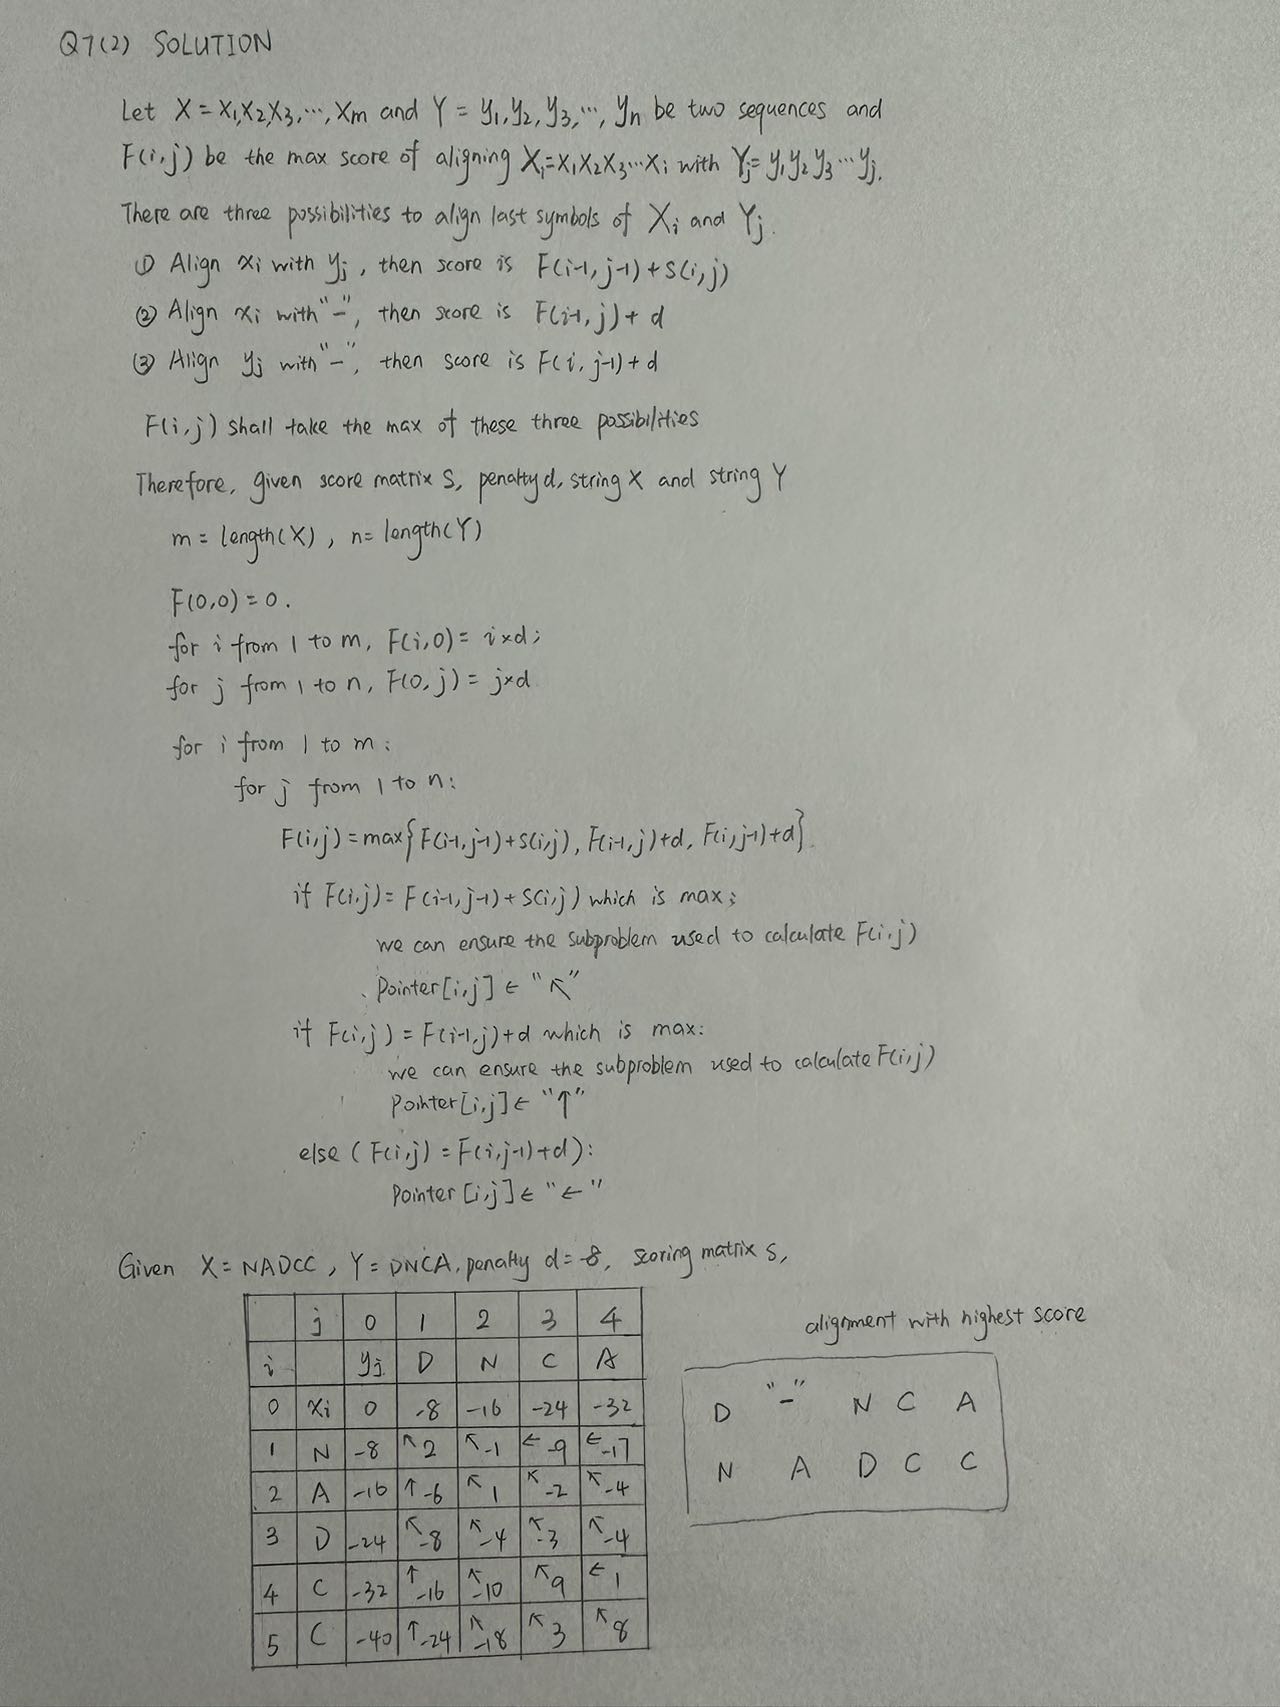 Q7(2) SOLUTION
Let X = X1,X2,X3,…,Xm and Y = y1,y2,y3,…,yn be two sequences and
F(i,j) be the max score of aligning Xi=X1X2X3…Xi with Yj=y1y2y3…yj.
There are three possibilities to align last symbols of Xi and Yj.
① Align xi with yj, then score is F(i-1,j-1)+S(i,j)
② Align xi with "-", then score is F(i-1,j)+d
③ Align yj with "-", then score is F(i,j-1)+d
F(i,j) shall take the max of these three possibilities
Therefore, given score matrix S, penalty d, string X and string Y
m = length(X), n= length(Y)
F(0,0)=0.
for i from 1 to m, F(i,0)= i×d;
for j from 1 to n, F(0,j)= j×d
for i from 1 to m:
for j from 1 to n:
F(i,j)=max{F(i-1,j-1)+S(i,j), F(i-1,j)+d, F(i,j-1)+d}
if F(i,j)= F(i-1,j-1)+S(i,j) which is max;
we can ensure the subproblem used to calculate F(i,j)
Pointer[i,j] ← "↖"
if F(i,j)=F(i-1,j)+d which is max:
we can ensure the subproblem used to calculate F(i,j)
Pointer[i,j] ← "↑"
else (F(i,j)=F(i,j-1)+d):
Pointer[i,j] ← "←"
Given X=NADCC, Y=DNCA, penalty d=-8, scoring matrix s,
j 0 1 2 3 4
i yj D N C A
0 Xi 0 -8 -16 -24 -32
1 N -8 ↖2 ↖-1 ←-9 ←-17
2 A -16 ↑-6 ↖1 ↖-2 ↖-4
3 D -24 ↖-8 ↖-4 ↖-3 ↖-4
4 C -32 ↑-16 ↖-10 ↖9 ←1
5 C -40 ↑-24 ↖-18 ↖3 ↖8
alignment with highest score
D "-" N C A
N A D C C